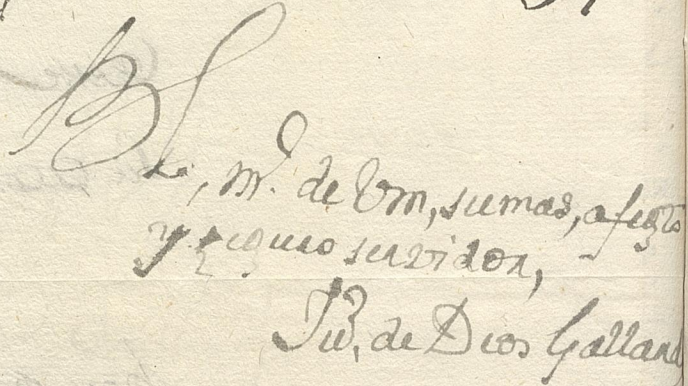 BL, m.º de Vm, su mas, afecto
y seguro servidor,
Ju, de Dios Galland